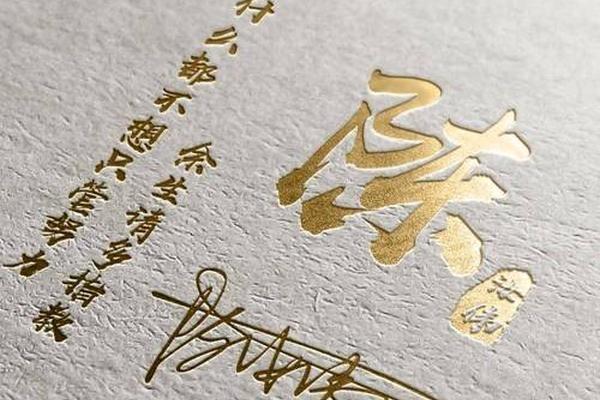 陈
余生请多指教
什么都不想只管努力